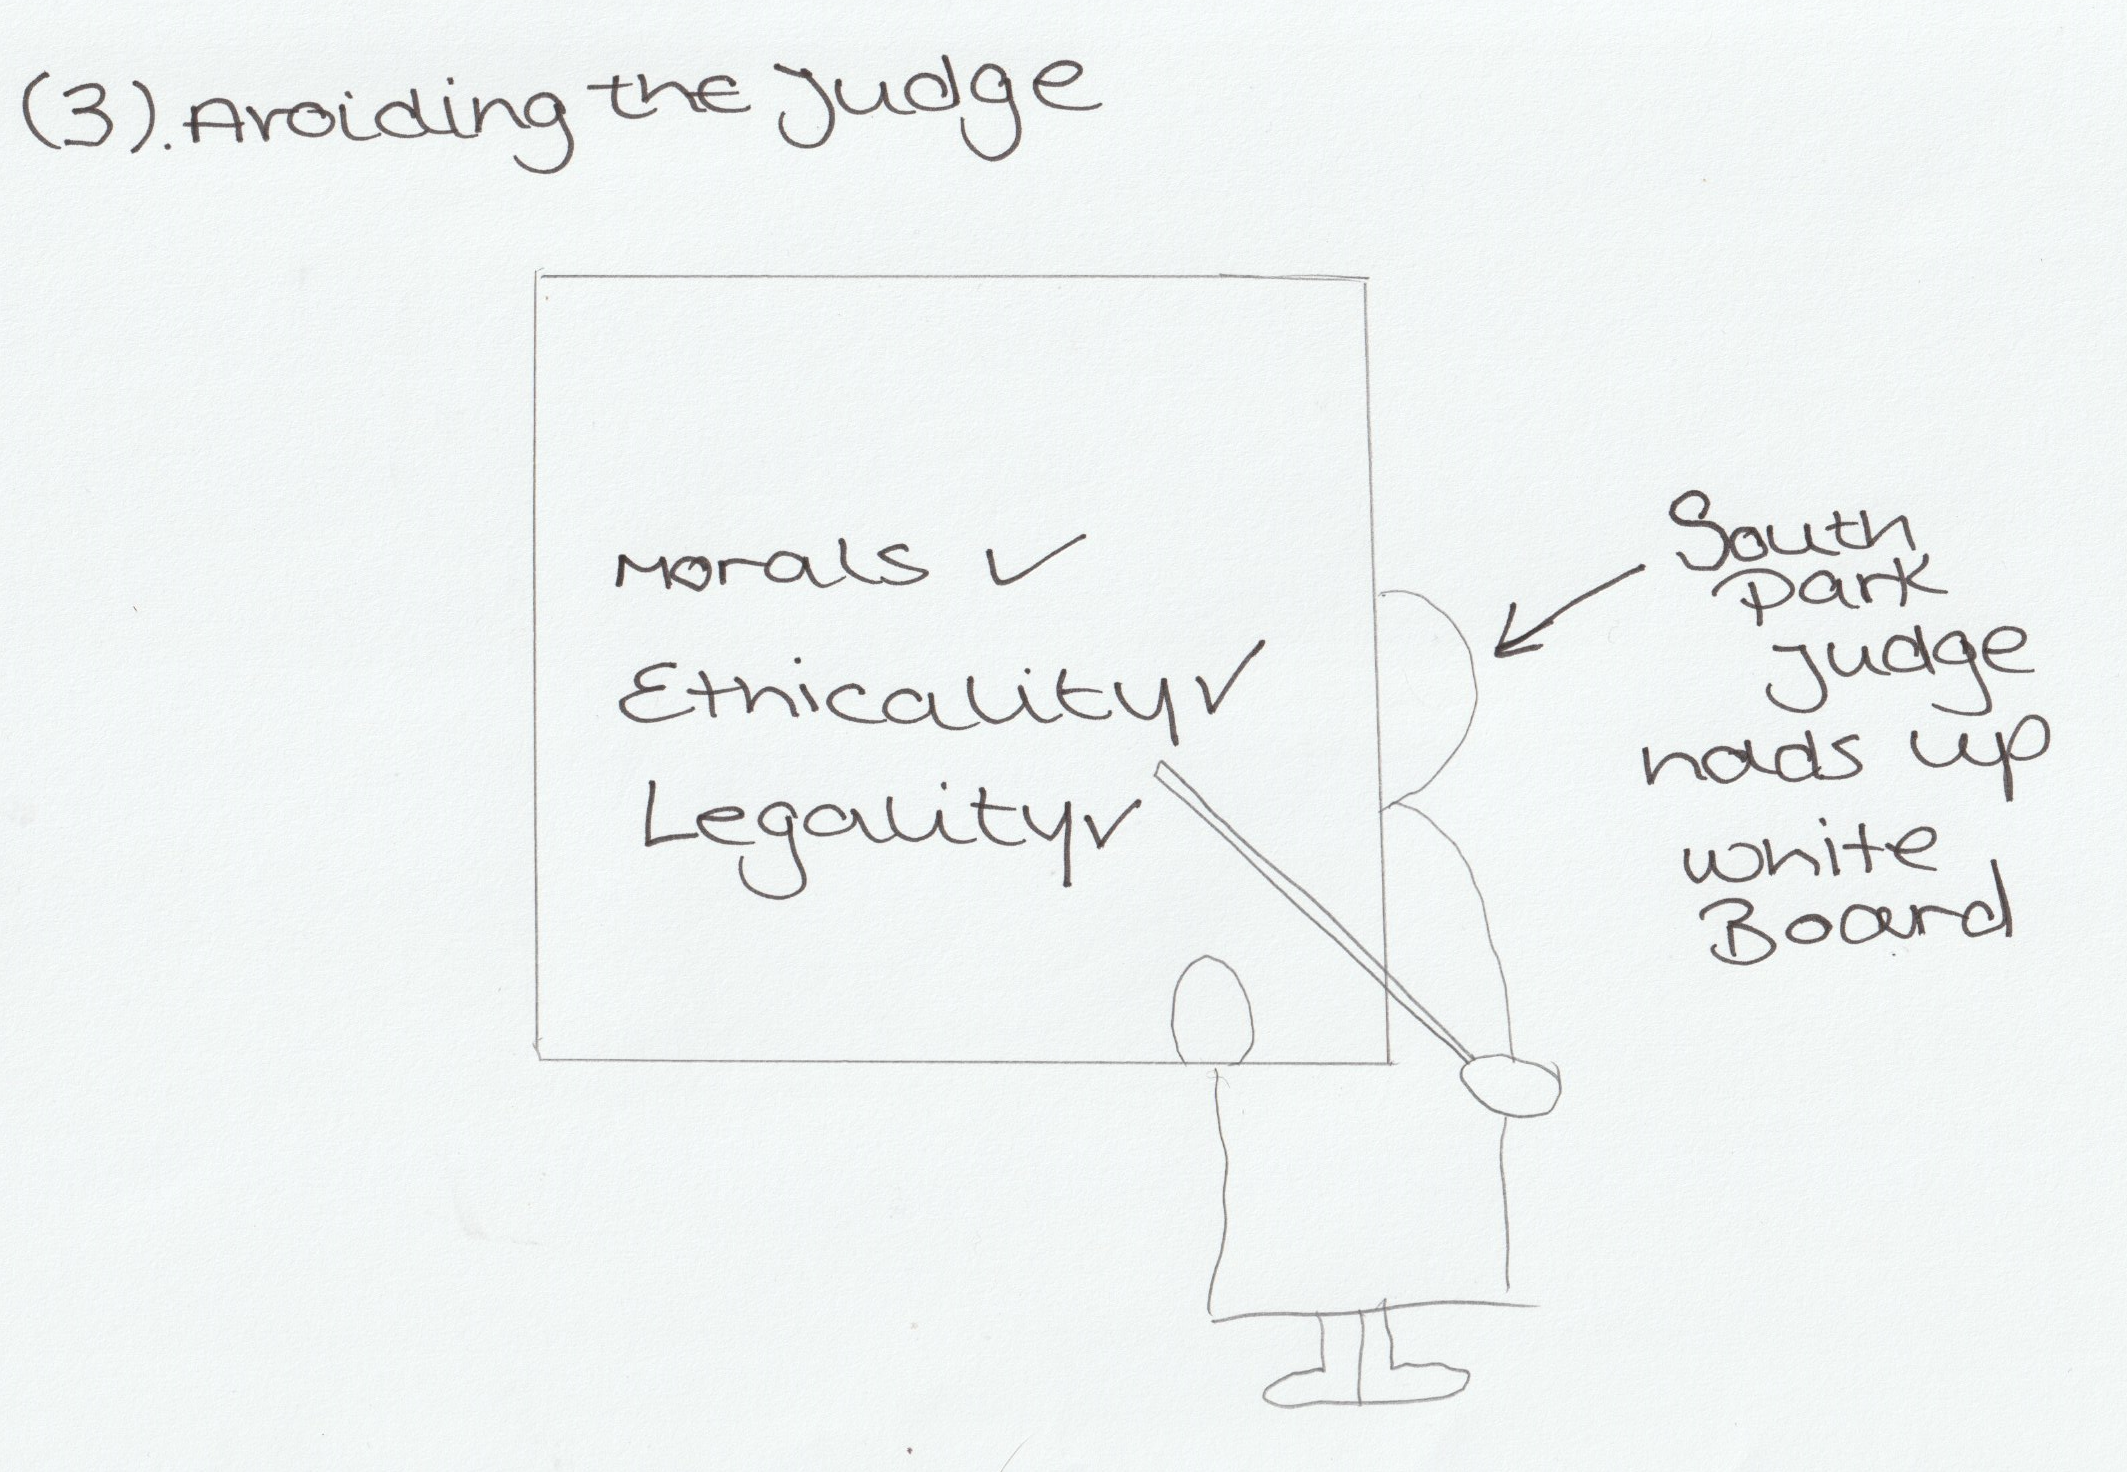 (3). Avoiding the Judge
Morals ✓
Ethicality ✓
Legality ✓
South
Park
Judge
holds up
white
Board